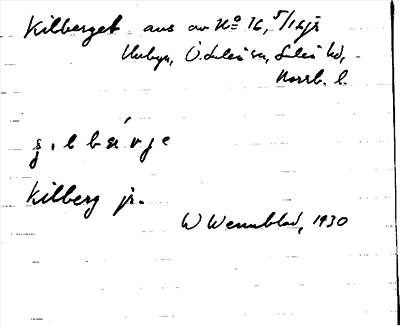 Kilberget aus av No 16, 5/16 jr
Unbyn, Ö. Luleå sn, Luleå hd,
Norrb. l.
Kilberg jr.
W Wennblad, 1930